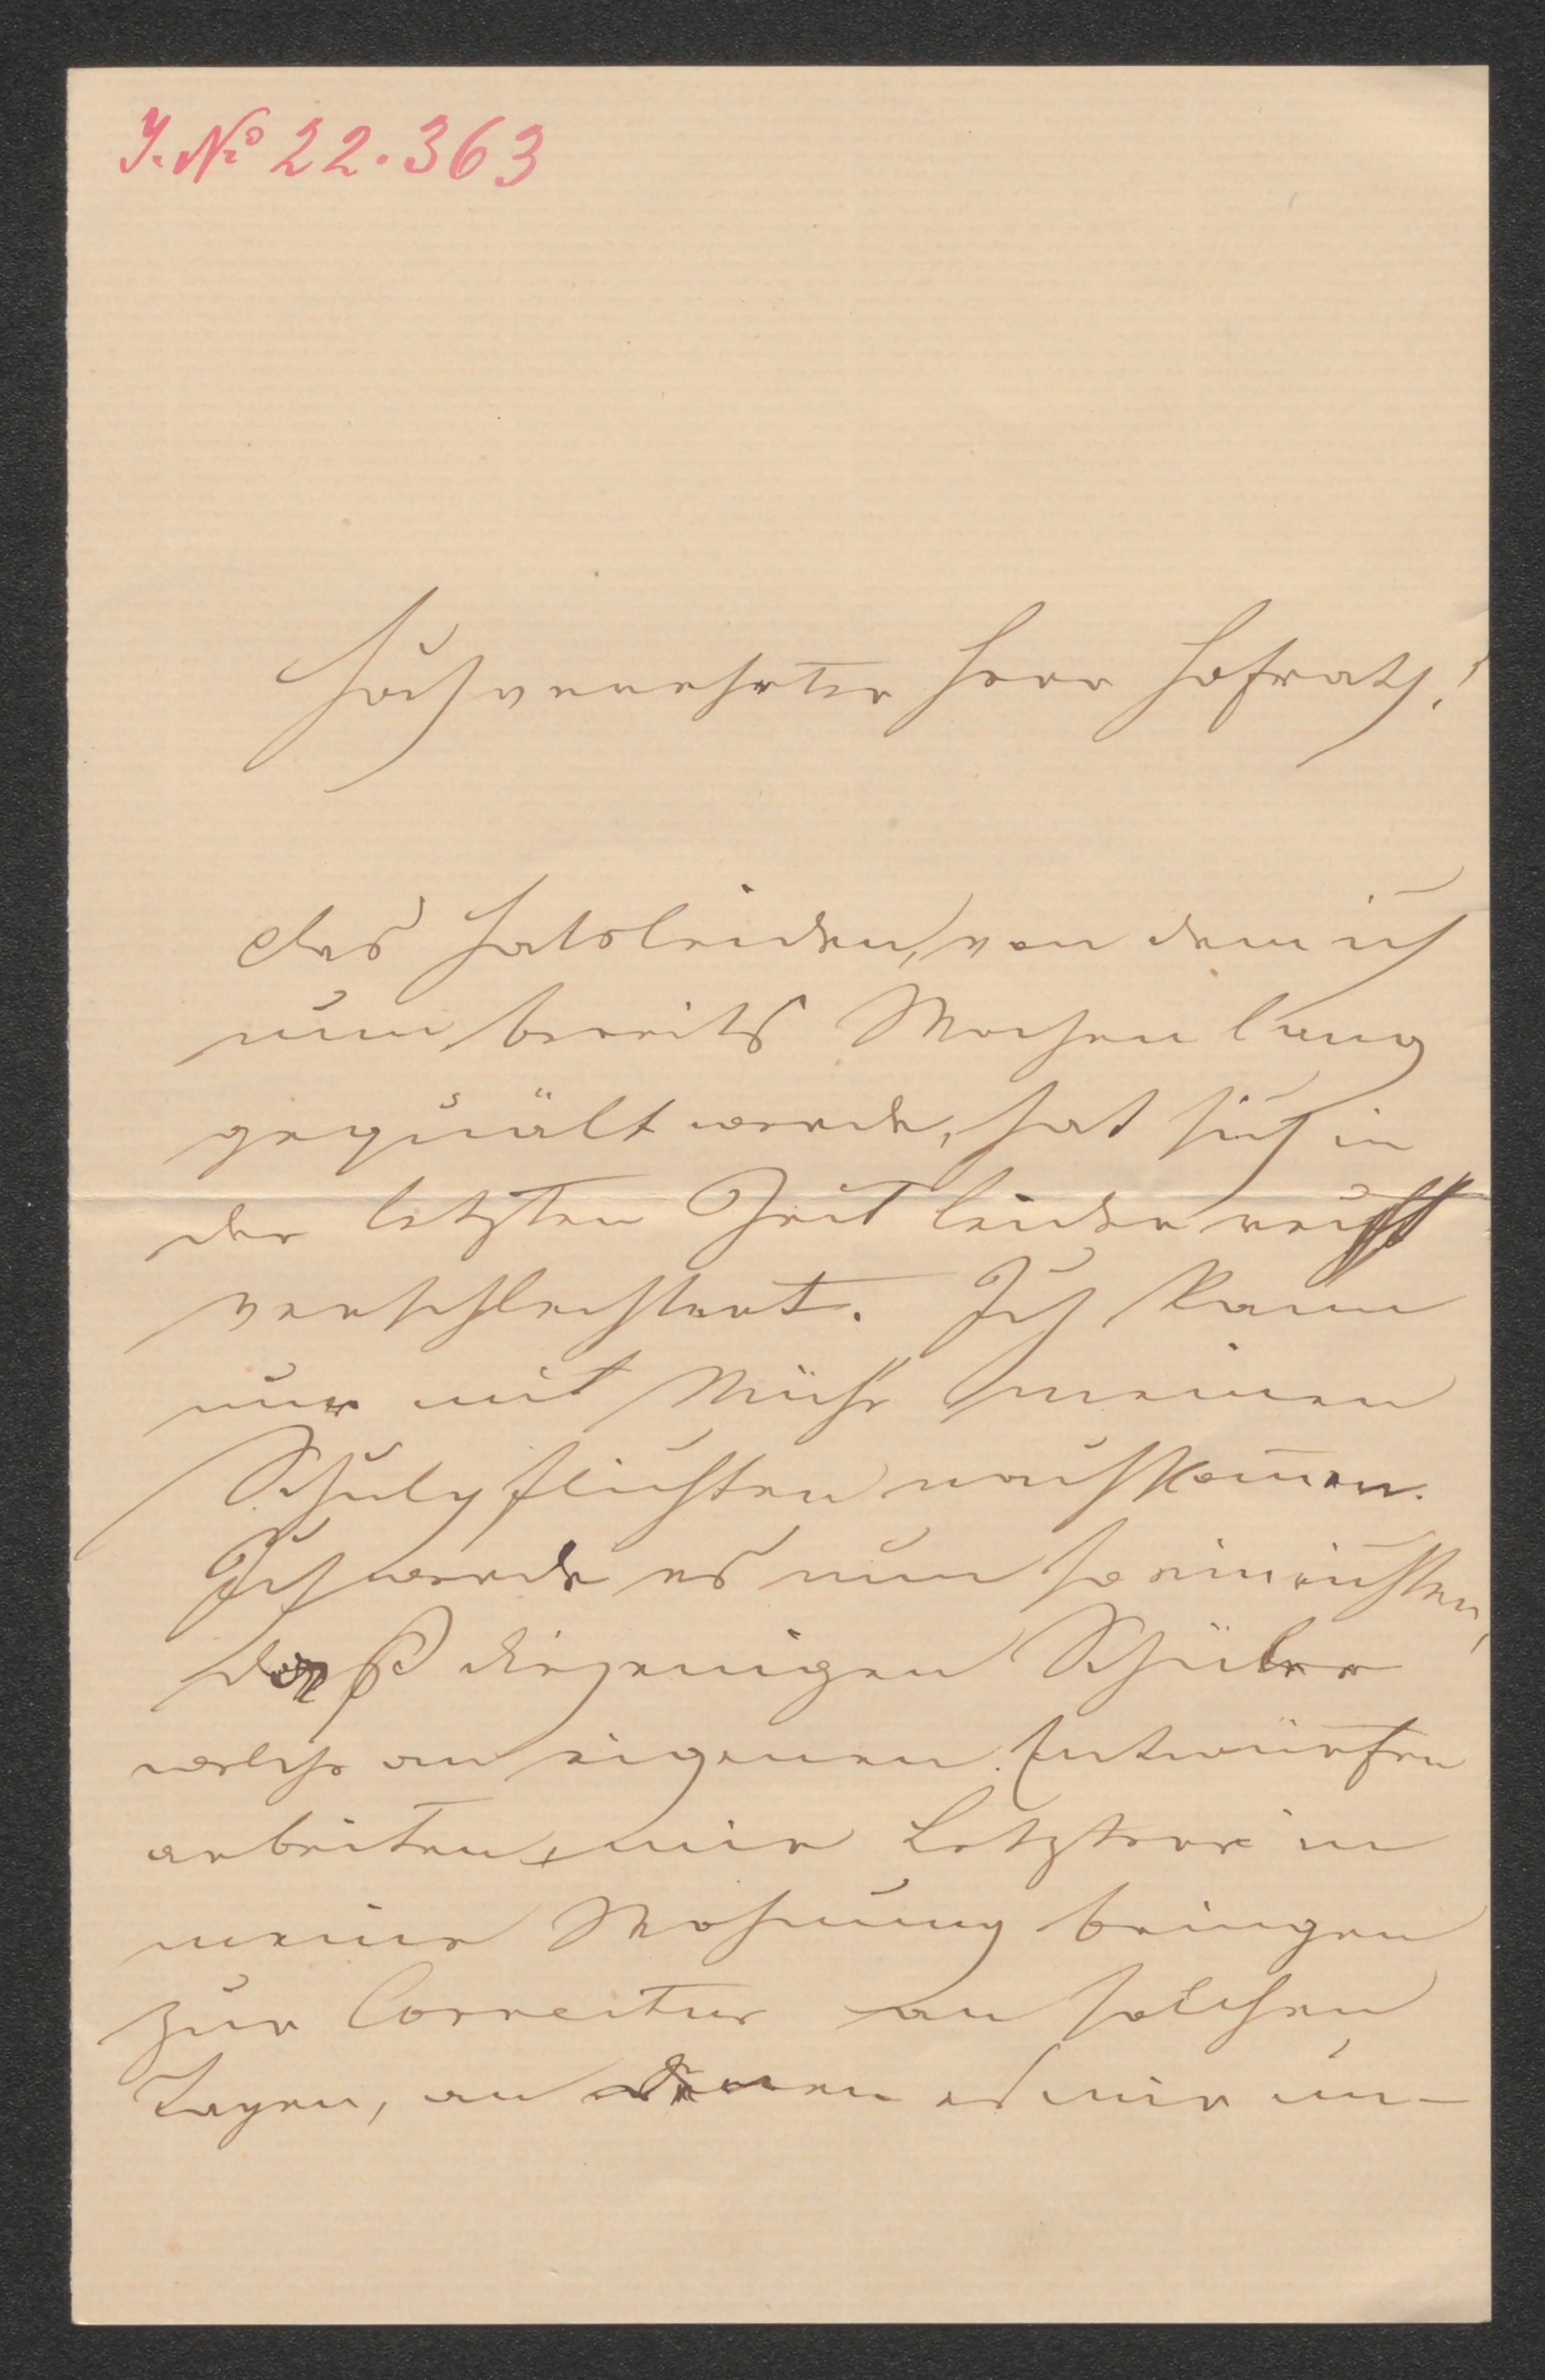 J. No 22.363
Hochverehrter Herr Hofrath!
Das Halsleiden, von dem ich
nun bereits Wochen lang
gequält werde, hat sich in
der letzten Zeit leider recht
verschlechtert. Ich kann
nur mit Mühe meinen
Schulpflichten nachkom̅en.
Ich werde es nun so einrichten,
daß diejenigen Schüler
welche an eigenen Entwürfen
arbeiten, mir Letztere in
meine Wohnung bringen
zur Correctur an solchen
Tagen, an denen es mir un-